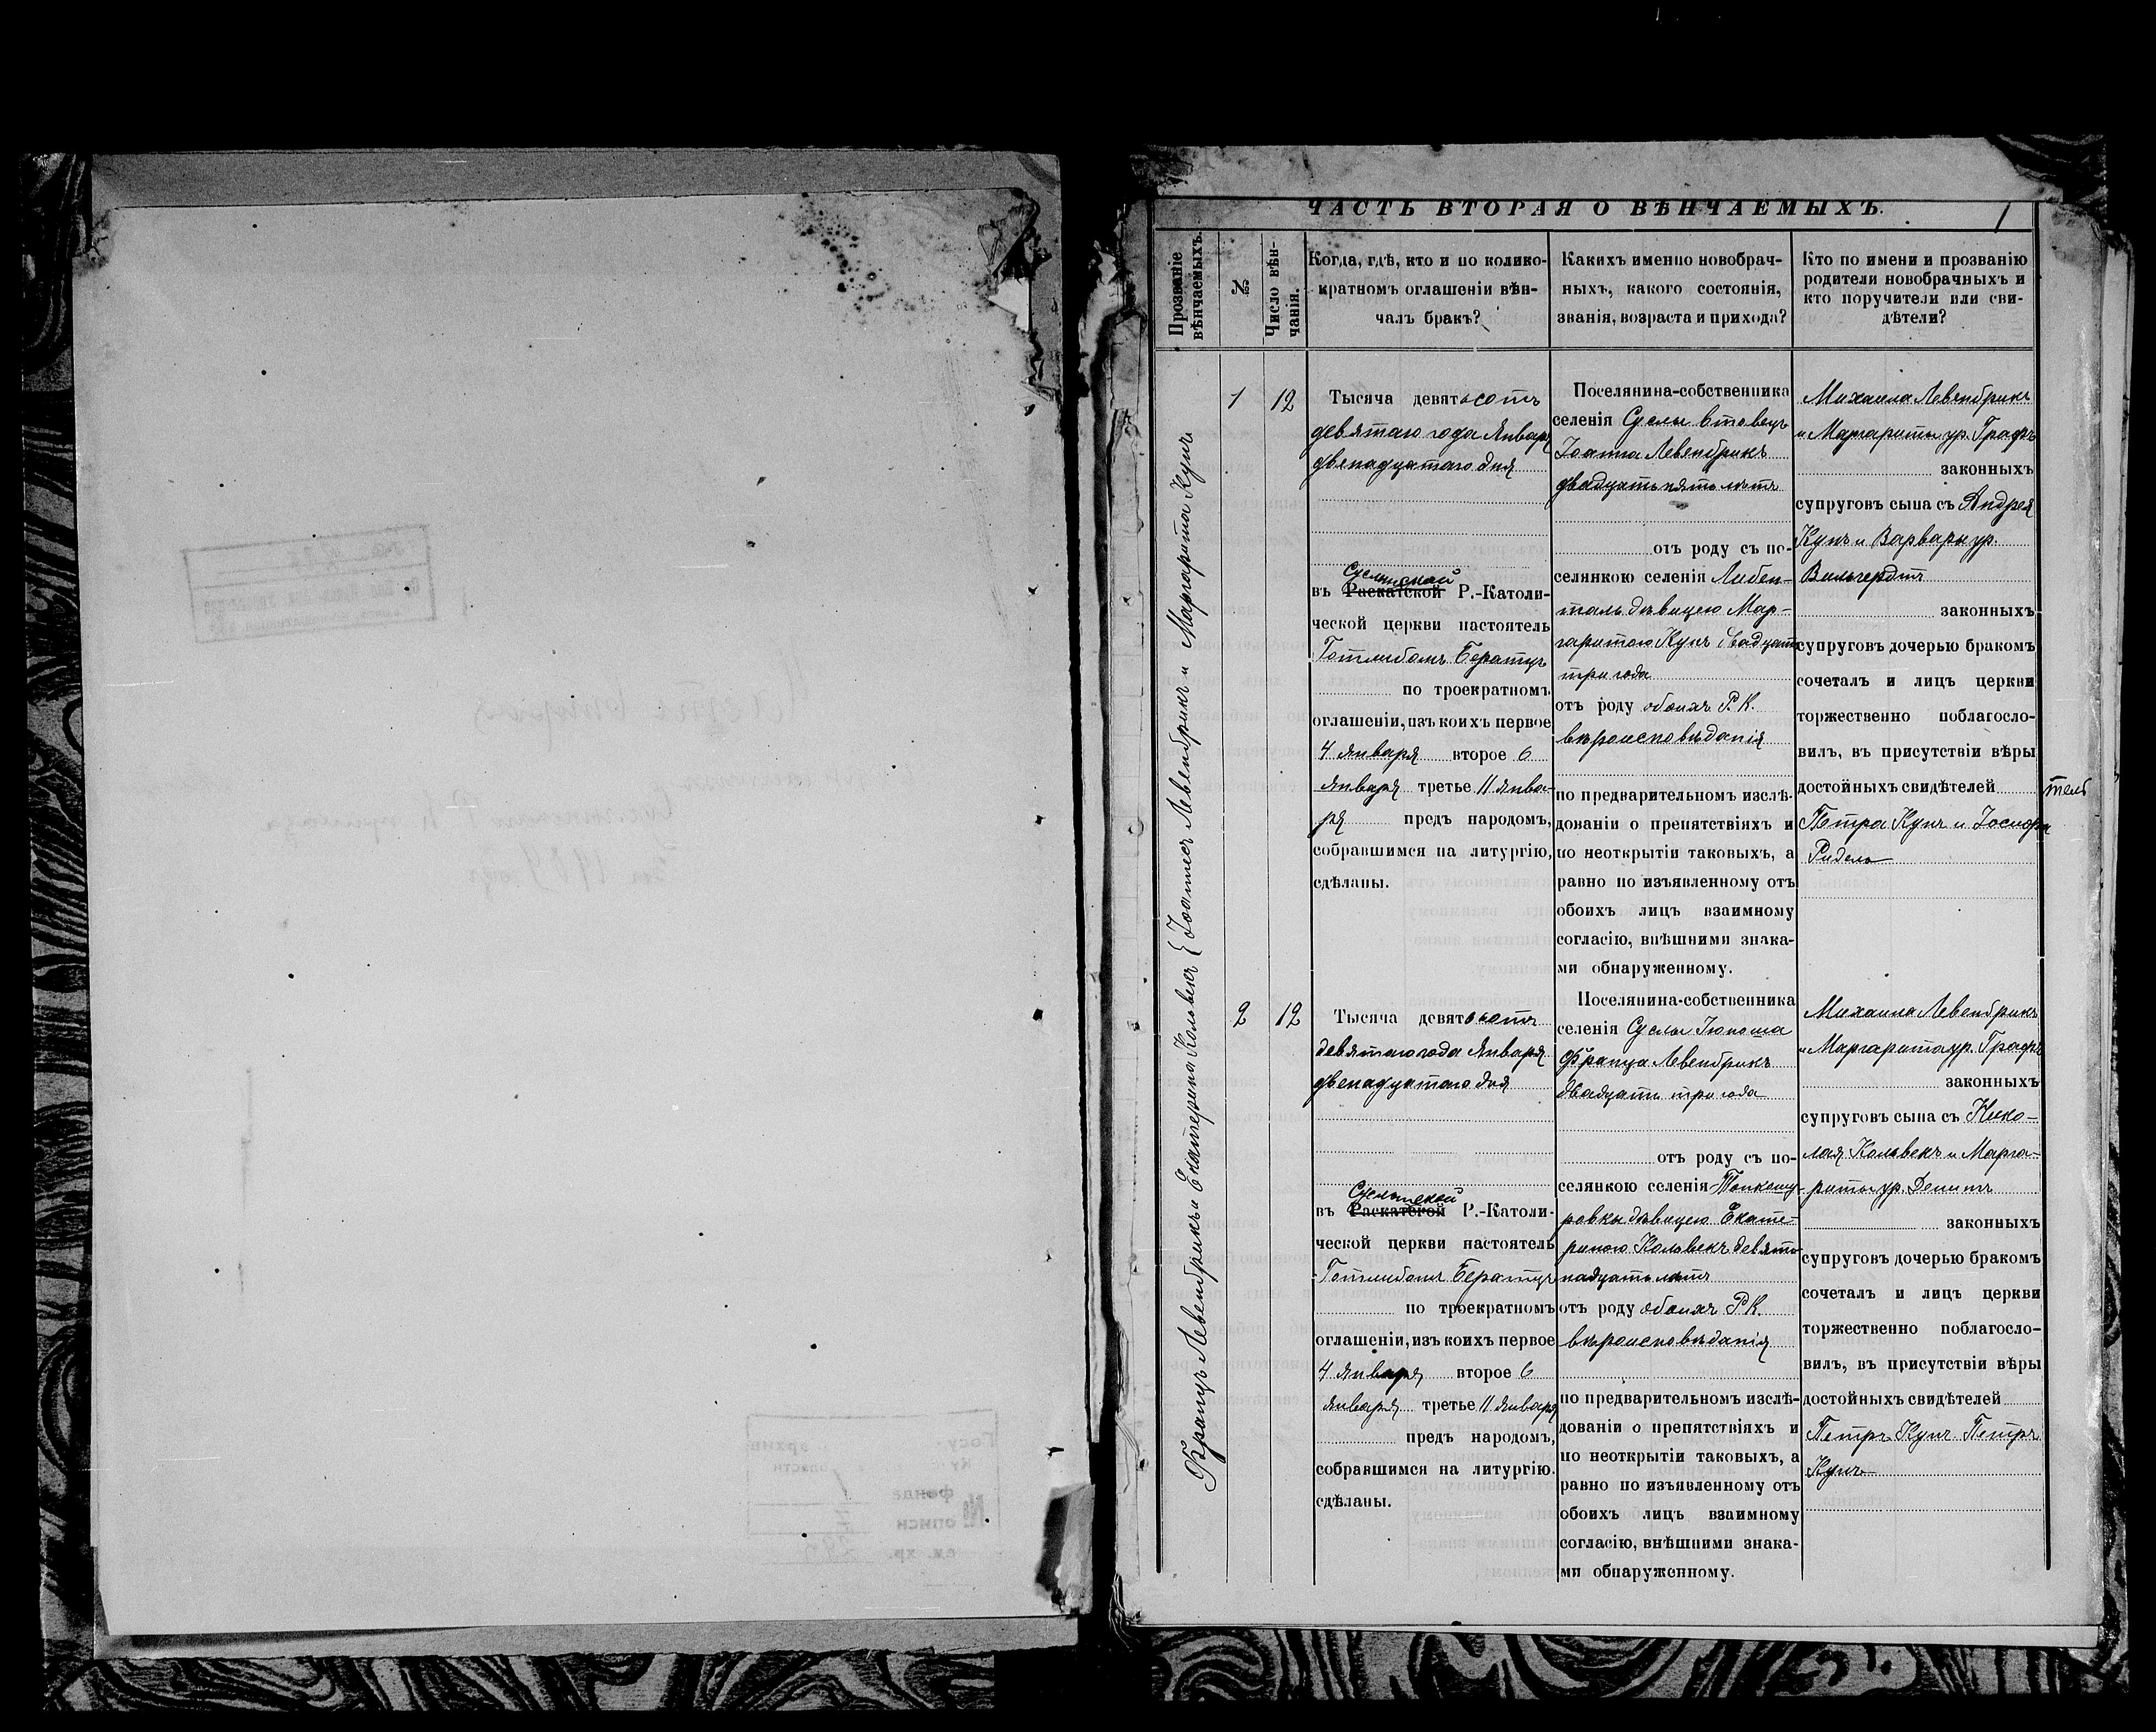 ЧАСТЬ ВТОРАЯ О ВѢНЧАЕМЫХЪ.
1
Прозваніе
вѣнчаемыхъ.
№
Число вѣн-
чанія.
Когда, гдѣ, кто и по колико-
кратномъ оглашеніи вѣн-
чалъ бракъ?
Какихъ именно новобрач-
ныхъ, какого состоянія,
званія, возраста и прихода?
Кто по имени и прозванію
родители новобрачныхъ и
кто поручители или сви-
дѣтели?
Іоаннъ Левенбрикъ и Маргарита Кунъ
1
12
Тысяча девятьсотъ
девятаго года Января
двенадцатаго дня
Суслынской
въ Раскатской Р.-Католи-
ческой церкви настоятель
Готлибомъ Бератцъ
по троекратномъ
оглашеніи, изъ коихъ первое
4 Января второе 6
Января третье 11 Янва-
ря предъ народомъ,
собравшимся на литургію,
сдѣланы.
Поселянина-собственника
селенія Суслы вдовецъ
Іоанна Левенбрикъ
двадцать пять летъ
отъ роду съ по-
селянкою селенія Либен-
таль дѣвицею Мар-
гаритою Кунъ двадцать
три года
отъ роду обоихъ Р. К.
вѣроисповѣданія
по предварительномъ изслѣ-
дованіи о препятствіяхъ и
по неоткрытіи таковыхъ, а
равно по изъявленному отъ
обоихъ лицъ взаимному
согласію, внѣшними знака-
ми обнаруженному.
Михаила Левенбрикъ
и Маргариты ур. Графъ
законныхъ
супруговъ сына съ Андрея
Кунъ и Варвары ур.
Вильгердтъ
законныхъ
супруговъ дочерью бракомъ
сочеталъ и лицъ церкви
торжественно поблагосло-
вилъ, въ присутствіи вѣры
достойныхъ свидѣтелей
Петра Кунъ и Іосифа
Ридель
Францъ Левенбрикъ и Екатерина Кольвекъ
2
12
Тысяча девятьсотъ
девятаго года Января
двенадцатаго дня
Суслынской
въ Раскатской Р.-Католи-
ческой церкви настоятель
Готлибомъ Бератцъ
по троекратномъ
оглашеніи, изъ коихъ первое
4 Января второе 6
Января третье 11 Января
предъ народомъ,
собравшимся на литургію.
сдѣланы.
Поселянина-собственника
селенія Суслы Юноша
Франца Левенбрикъ
двадцати три года
отъ роду съ по-
селянкою селенія Тонкошу-
ровки дѣвицею Екате-
риною Кольвекъ девят-
надцать летъ
отъ роду обоихъ Р. К.
вѣроисповѣданія
по предварительномъ изслѣ-
дованіи о препятствіяхъ и
по неоткрытіи таковыхъ, а
равно по изъявленному отъ
обоихъ лицъ взаимному
согласію, внѣшними знака-
ми обнаруженному.
Михаила Левенбрикъ
и Маргарита ур. Графъ
законныхъ
супруговъ сына съ Нико-
лая Кольвекъ и Марга-
риты ур. Денингъ
законныхъ
супруговъ дочерью бракомъ
сочеталъ и лицъ церкви
торжественно поблагосло-
вилъ, въ присутствіи вѣры
достойныхъ свидѣтелей
Петръ Кунъ Петръ
Кунъ